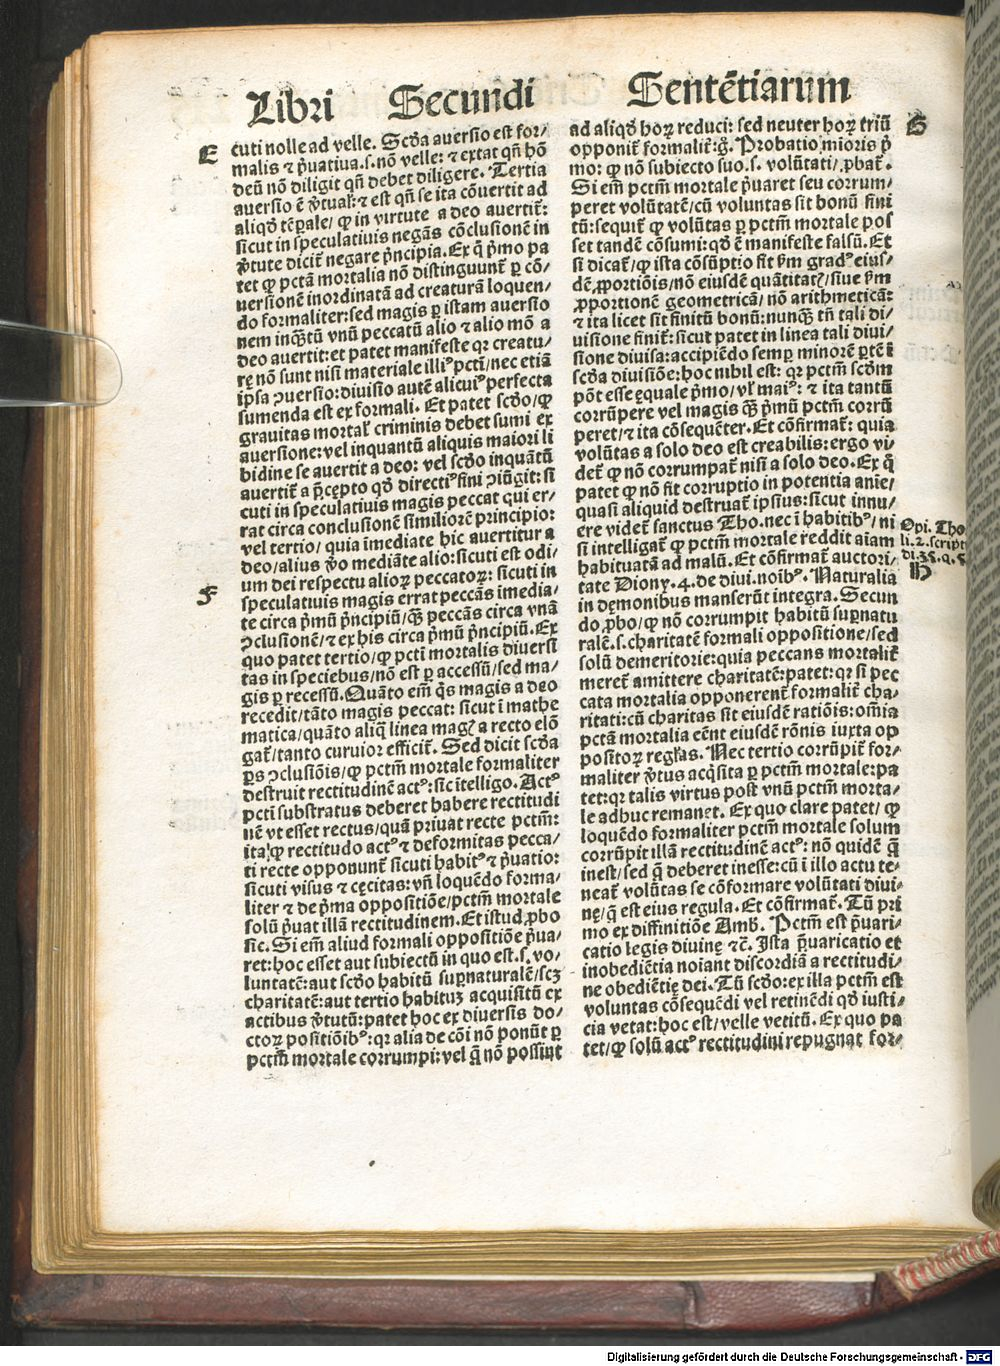 Libri Secundi Sentētiarum
E
cuti nolle ad velle. Scḋa auersio est for⸗
malis ⁊ p̄uatiua.s.nō velle: ⁊ extat qn̄ hō
deū nō diligit qn̄ debet diligere. Tertia
auersio ē ꝟtual': ⁊ est qn̄ se ita cōuertit ad
aliqḋ tēp̄ale/ ꝙ in virtute a deo auertit̄:
sicut in speculatiuis negans cōclusionē in
ꝟtute dicit̄ negare p̄ncipia. Ex q̄ p̄mo pa
tet ꝙ pctā mortalia nō distinguunt̄ ꝑ cō⸗
uersionē inordinatā ad creaturā loquen⸗
do formaliter: sed magis ꝑ istam auersio
nem inq̄ꝫtū vnū peccatū alio ⁊ alio mō a
deo auertit: et patet manifeste qꝛ creatu⸗
rę nō sunt nisi materiale illiꝰ pcti/ nec etiā
ipsa ꝯuersio: diuisio autē alicuiꝰ perfecta
sumenda est ex formali. Et patet scḋo/ ꝙ
grauitas mortal' criminis debet sumi ex
auersione: vel inquantū aliquis maiori li
bidine se auertit a deo: vel scḋo inquātū
auertit̄ a p̄cepto qḋ directiꝰ fini ꝯiūgit: si
cuti in speculatiuis magis peccat qui er⸗
rat circa conclusionē similiorē principio:
vel tertio/ quia īmediate hic auertitur a
deo/ alius ꝟo mediāte alio: sicuti est odi⸗
um dei respectu alioꝝ peccatoꝝ: sicuti in
F
speculatiuis magis errat peccās imedia⸗
te circa p̄mū p̄ncipiū/ q̄ꝫ peccās circa vnā
ꝯclusionē/ ⁊ ex his circa p̄mū p̄ncipiū. Ex
quo patet tertio/ ꝙ pcti mortalis diuersi
tas in speciebus/ nō est ꝑ accessū/ sed ma⸗
gis ꝑ recessū. Quāto em̄ q̄s magis a deo
recedit/ tāto magis peccat: sicut ī mathe
matica/ quāto aliq̄ linea magꝭ a recto elō
gat̄/ tanto curuior efficit̄. Sed dicit scḋa
ps ꝯclusiōis/ ꝙ pctm̄ mortale formaliter
destruit rectitudinē actꝰ: sic ītelligo. Actꝰ
pcti substratus deberet habere rectitudi
nē vt esset rectus/ quā priuat recte pctm̄:
ita ꝙ rectitudo actꝰ ⁊ deformitas pecca⸗
ti recte opponunt̄ sicuti habitꝰ ⁊ p̄uatio:
sicuti visus ⁊ cęcitas: vn̄ loquēdo forma⸗
liter ⁊ de p̄ma oppositiōe/ pctm̄ mortale
solū p̄uat illā rectitudinem. Et istud ꝓbo
sic. Si em̄ aliud formali oppositiōe p̄ua⸗
ret: hoc esset aut subiectū in quo est.s. vo⸗
luntatē: aut scḋo habitū suꝑnaturalē/ scꝫ
charitatē: aut tertio habituꝫ acquisitū ex
actibus ꝟtutū: patet hoc ex diuersis do⸗
ctoꝝ positiōibꝰ: qꝛ alia de cōi nō ponūt ꝑ
pctm̄ mortale corrumpi: vel q̄ nō possint
G
ad aliqḋ hoꝝ reduci: sed neuter hoꝝ triū
opponit̄ formalit̄: g̊. Probatio mioris p̄
mo: ꝙ nō subiecto suo.s. volūtati/ ꝓbat̄.
Si em̄ pctm̄ mortale p̄uaret seu corrum⸗
peret volūtatē/ cū voluntas sit bonū fini
tū: sequit̄ ꝙ volūtas ꝑ pctm̄ mortale pos
set tandē cōsumi: qḋ ē manifeste falsū. Et
si dicat̄/ ꝙ ista cōsūptio fit ẜm gradꝰ eius⸗
dē ꝓportiōis/ nō eiusdē quātitatꝭ/ siue ẜm
ꝓportionē geometricā/ nō arithmeticā:
⁊ ita licet sit finitū bonū: nunq̄ꝫ tn̄ tali di⸗
uisione finit̄: sicut patet in linea tali diui⸗
sione diuisa: accipiēdo semꝑ minorē ꝑtē ī
scḋa diuisiōe: hoc nihil est: qꝛ pctm̄ scḋm
pōt esse ęquale p̄mo/ vl' maiꝰ: ⁊ ita tantū
corrūpere vel magis q̄ꝫ p̄mū pctm̄ corrū
peret/ ⁊ ita cōsequēter. Et cōfirmat̄: quia
volūtas a solo deo est creabilis: ergo vi⸗
det̄ ꝙ nō corrumpat̄ nisi a solo deo. Ex q̄
patet ꝙ nō fit corruptio in potentia anię/
quasi aliquid destruat̄ ipsius: sicut innu⸗
ere videt̄ sanctus Tho. nec ī habitibꝰ/ ni
si intelligat̄ ꝙ pctm̄ mortale reddit aīam
habituatā ad malū. Et cōfirmat̄ auctori⸗
tate Diony. 4. de diui. noībꝰ. Naturalia
in dęmonibus manserūt integra. Secun
do ꝓbo/ ꝙ nō corrumpit habitū suꝑnatu
ralē.s. charitatē formali oppositione/ sed
solū demeritorie: quia peccans mortalit̄
meret̄ amittere charitatē: patet: qꝛ si pec
cata mortalia opponerent̄ formalit̄ cha⸗
ritati: cū charitas sit eiusdē ratiōis: om̄ia
pctā mortalia eēnt eiusdē rōnis iuxta op
positoꝝ regl'as. Nec tertio corrūpit̄ for⸗
maliter ꝟtus acq̄sita ꝑ pctm̄ mortale: pa
tet: qꝛ talis virtus post vnū pctm̄ morta⸗
le adhuc remanet. Ex quo clare patet/ ꝙ
loquēdo formaliter pctm̄ mortale solum
corrūpit illā rectitudinē actꝰ: nō quidē q̄
inest/ sed q̄ deberet inesse: cū ī illo actu te⸗
neat̄ volūtas se cōformare volūtati diui⸗
nę/ q̄ est eius regula. Et cōfirmat̄. Tū pri
mo ex diffinitiōe Amb. Pctm̄ est p̄uari⸗
catio legis diuinę ⁊c̄. Ista p̄uaricatio et
inobediētia noīant discordiā a rectitudi⸗
ne obediētię dei. Tū scḋo: ex illa pctm̄ est
voluntas cōsequēdi vel retinēdi qḋ iusti⸗
cia vetat: hoc est/ velle vetitū. Ex quo pa
tet/ ꝙ solū actꝰ rectitudini repugnat for⸗
Opi. Tho
li. 2. script
di. 35. q. 5
H
Digitalisierung gefördert durch die Deutsche Forschungsgemeinschaft - DFG